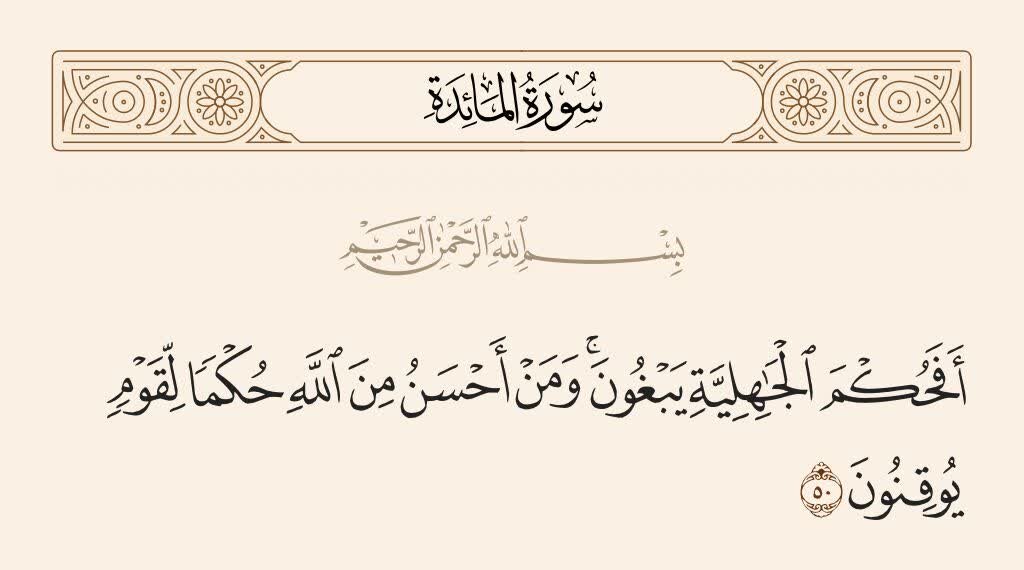 سُورَةُ المَائِدَةِ
بِسْمِ ٱللَّهِ ٱلرَّحْمَٰنِ ٱلرَّحِيمِ
أَفَحُكْمَ ٱلْجَٰهِلِيَّةِ يَبْغُونَ ۚ وَمَنْ أَحْسَنُ مِنَ ٱللَّهِ حُكْمًا لِّقَوْمٍ
يُوقِنُونَ ٥٠